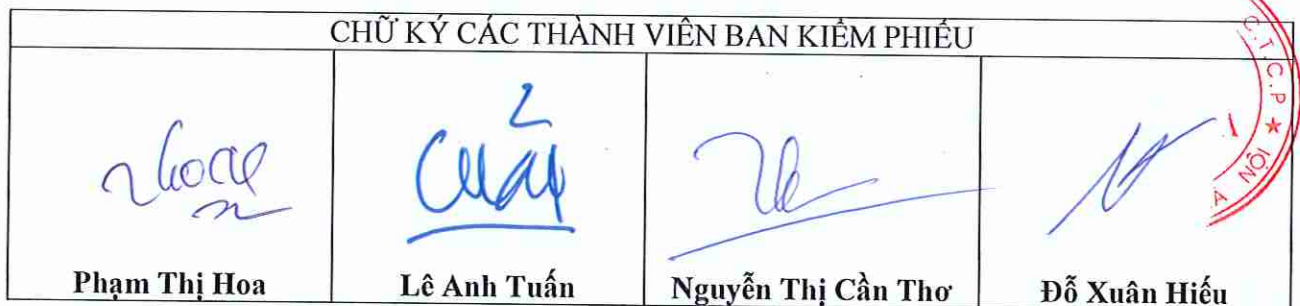 CHỮ KÝ CÁC THÀNH VIÊN BAN KIỂM PHIẾU
C.T.C.P ★
NỘI
Phạm Thị Hoa
Lê Anh Tuấn
Nguyễn Thị Cần Thơ
Đỗ Xuân Hiếu